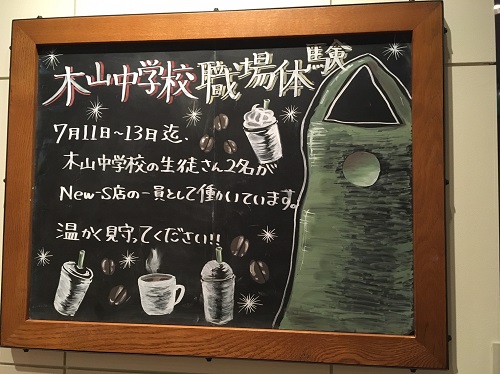 木山中学校職場体験
7月11日～13日迄、
木山中学校の生徒さん2名が
New-S店の一員として働いています。
温かく見守ってください!!